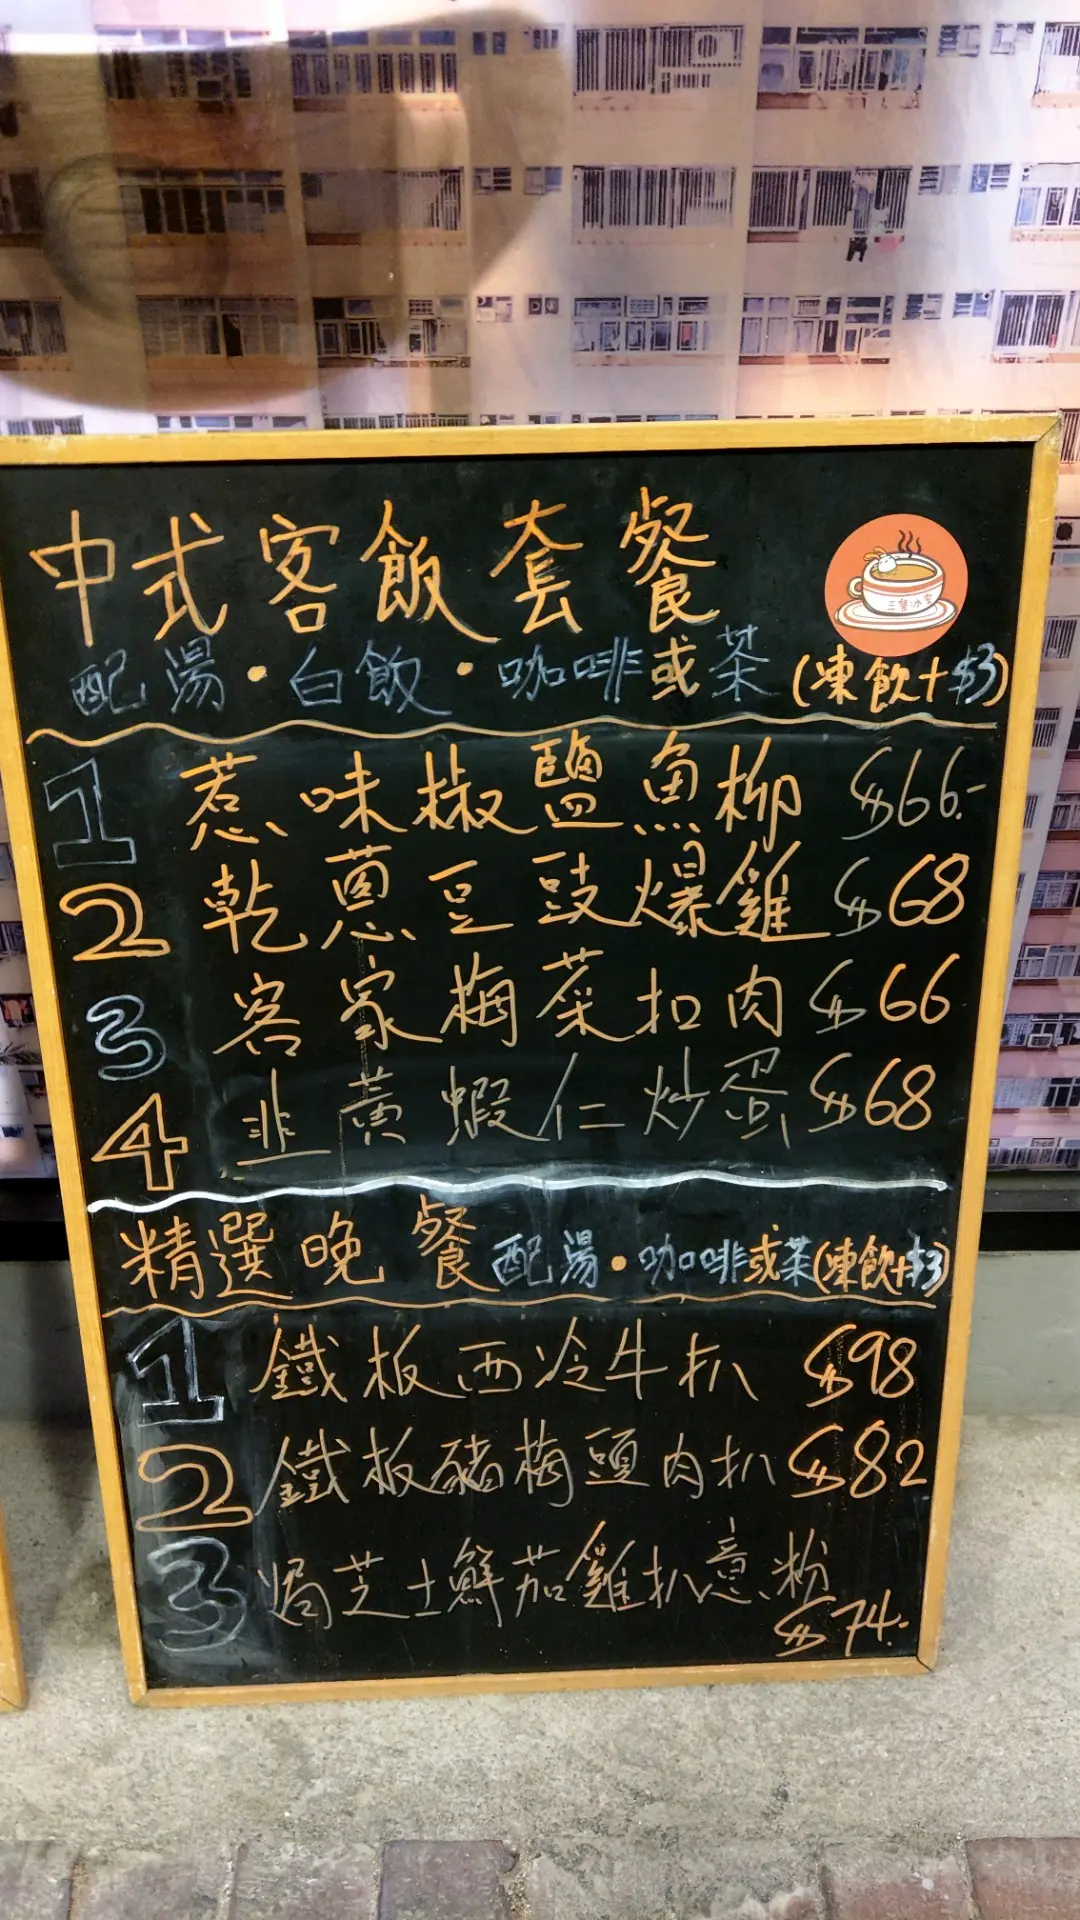 中式客飯套餐
三餐冰室
配湯·白飯·咖啡或茶(凍飲+$3)
1 惹味椒鹽魚柳 $66.-
2 乾蔥豆豉爆雞 $68
3 客家梅菜扣肉 $66
4 韭黃蝦仁炒蛋 $68
精選晚餐 配湯·咖啡或茶(凍飲+$3)
1 鐵板西冷牛扒 $98
2 鐵板豬梅頭肉扒 $82
3 焗芝士鮮茄雞扒意粉
$74.-